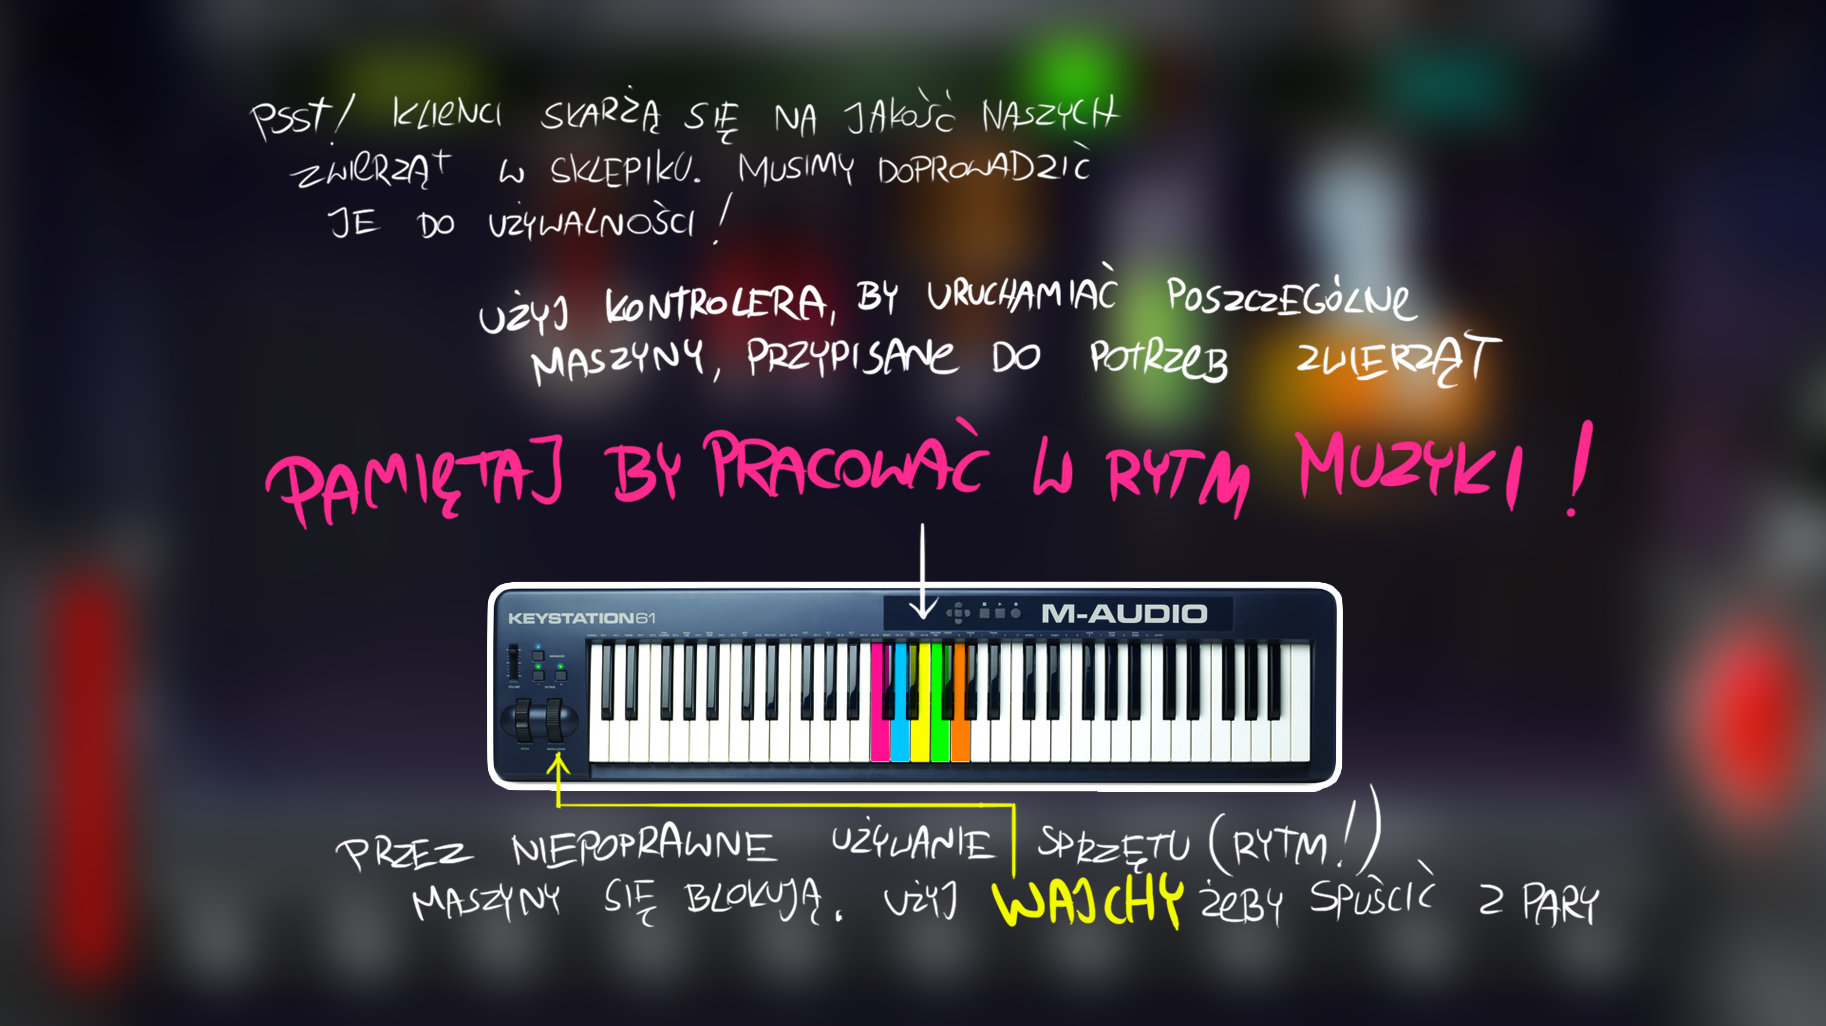 PSST! KLIENCI SKARŻĄ SIĘ NA JAKOŚĆ NASZYCH
ZWIERZĄT W SKLEPIKU. MUSIMY DOPROWADZIĆ
JE DO UŻYWALNOŚCI!
UŻYJ KONTROLERA, BY URUCHAMIAĆ POSZCZEGÓLNE
MASZYNY, PRZYPISANE DO POTRZEB ZWIERZĄT
PAMIĘTAJ BY PRACOWAĆ W RYTM MUZYKI!
KEYSTATION61
M-AUDIO
PRZEZ NIEPOPRAWNE UŻYWANIE SPRZĘTU (RYTM!)
MASZYNY SIĘ BLOKUJĄ. UŻYJ WAJCHY ŻEBY SPUŚCIĆ Z PARY